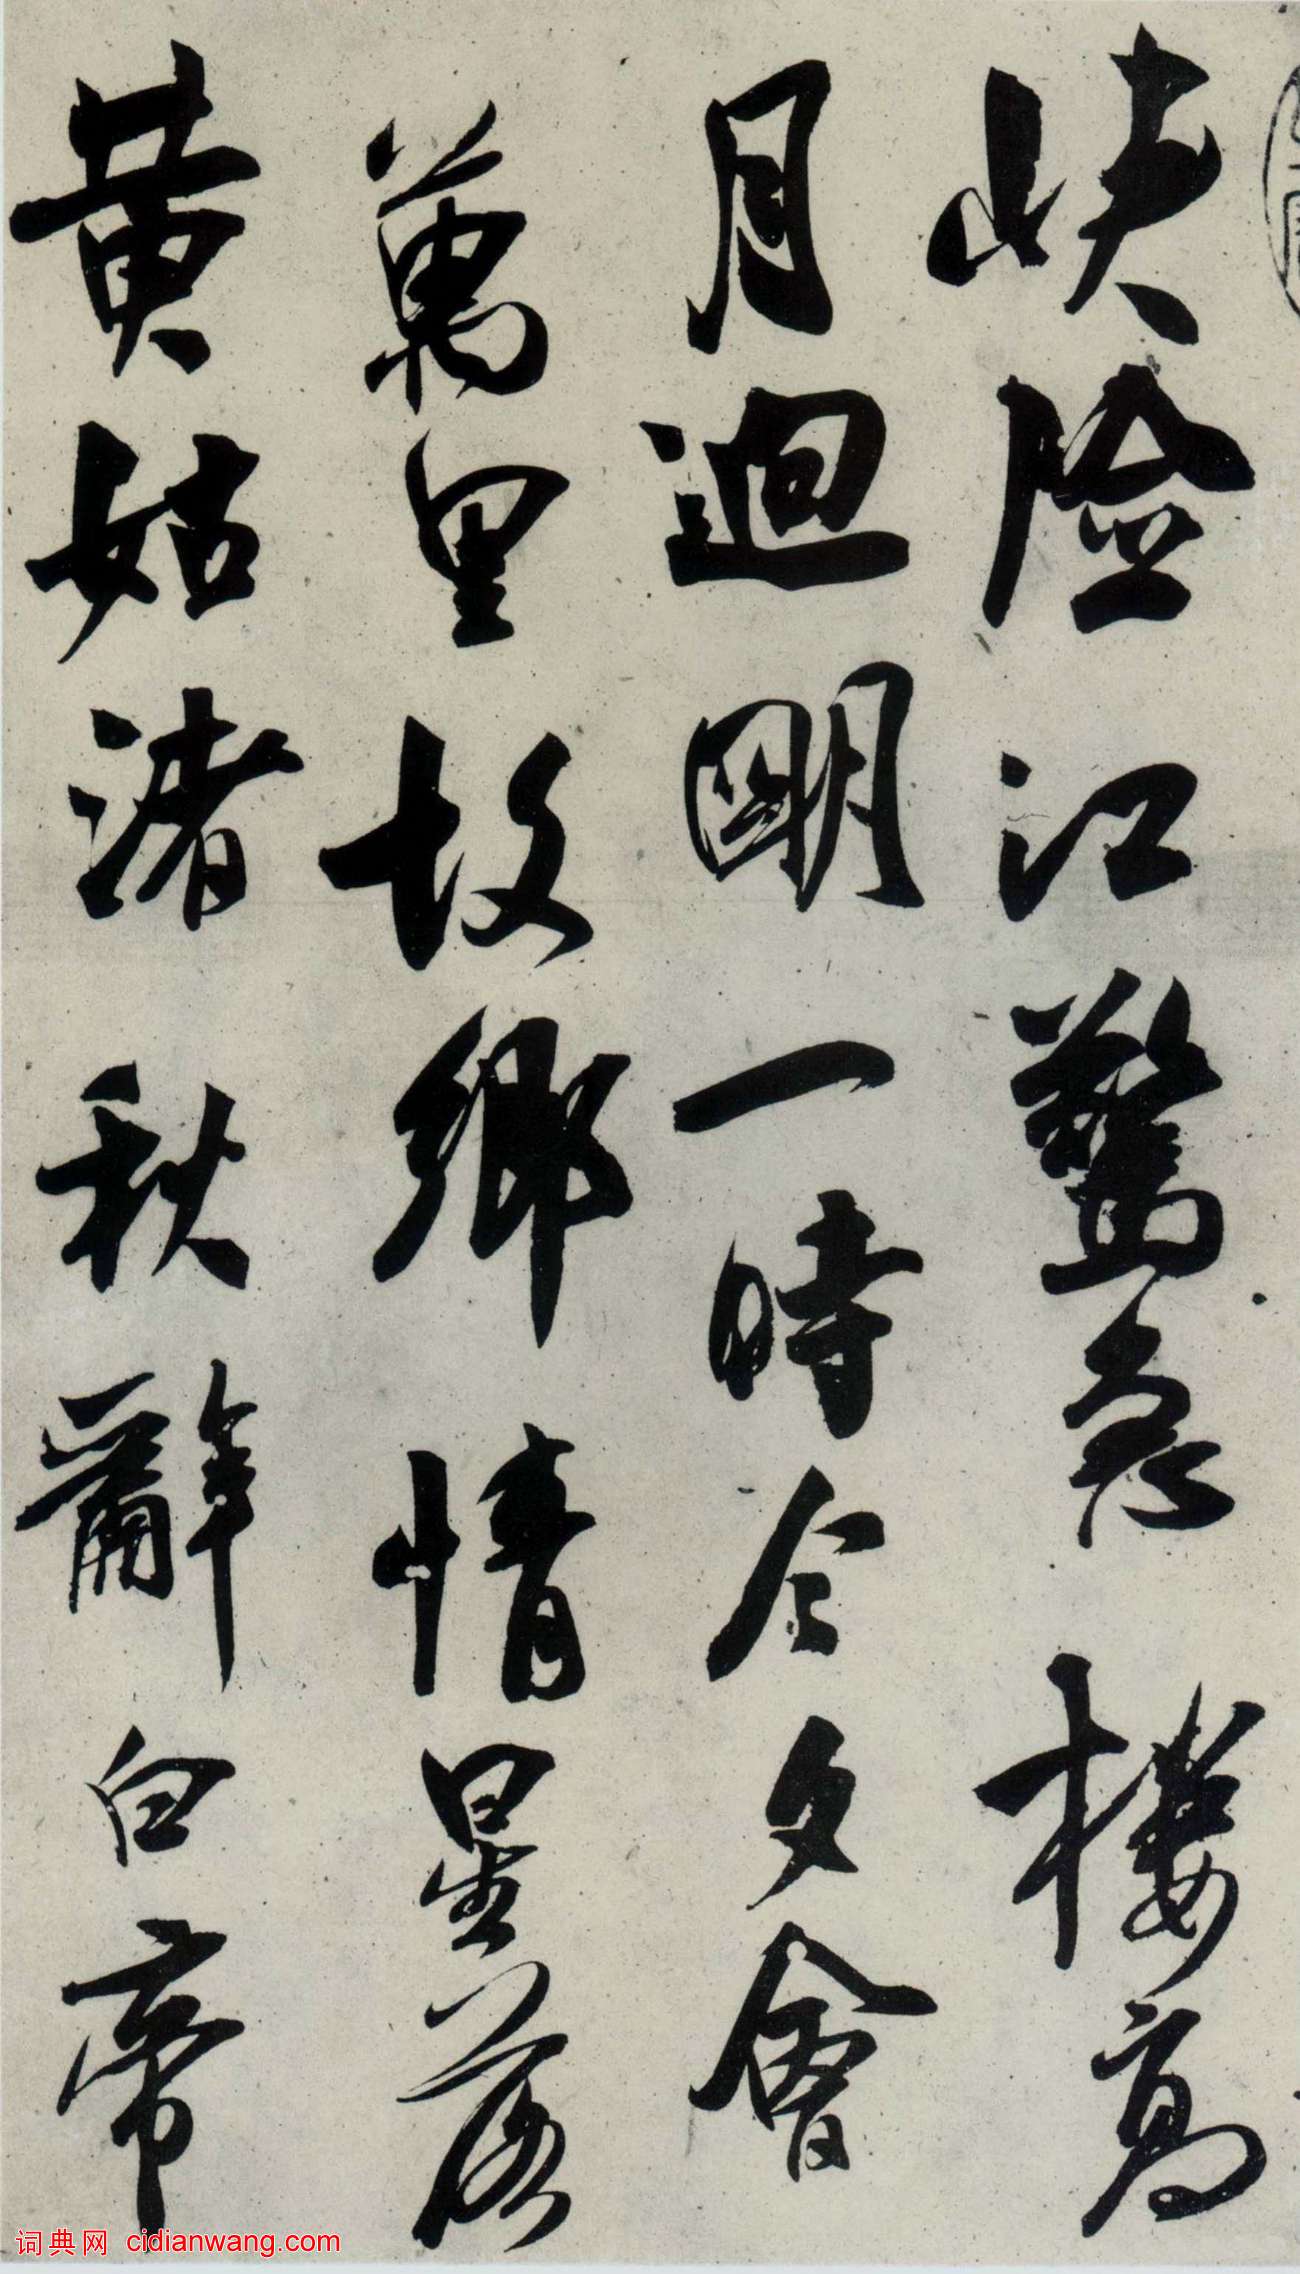 峡險江驚急樓高
月迥明一時今夕會
萬里故鄉情星落
黃姑渚秋辭白帝
词典网 cidianwang.com